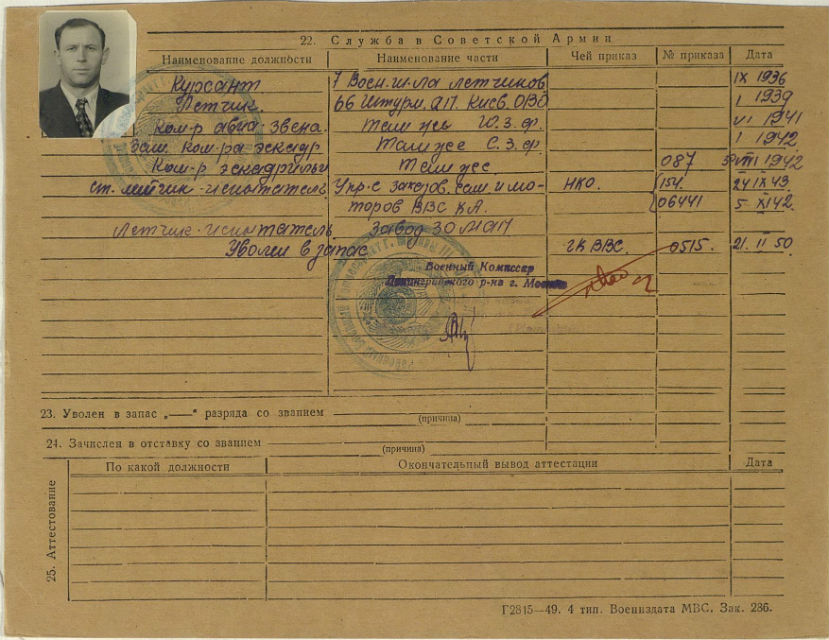 22. Служба в Советской Армии
Наименование должности Наименование части Чей приказ № приказа Дата
Курсант 7 Воен. ш-ла летчиков IX 1936
Летчик. 66 Штурм. ап. Киев. ОВО I 1939
Ком-р авиа-звена. Там же Ю.З.ф. VI 1941
Зам. ком-ра эскадр. Там же С.З.ф I 1942
Ком-р эскадрильи Там же 087 VIII 1942
ст. летчик-испытатель Упр-е заказов, сам. и мо- НКО. 154. 24 IX 43.
торов ВВС КА. 06441 5 XI 42.
Летчик-испытатель Завод 30 МАП
Уволен в запас ГК ВВС. 0515. 21. II 50
Военный Комиссар
Ленинградского р-на г. Москвы
23. Уволен в запас „—“ разряда со званием
(причина)
24. Зачислен в отставку со званием
(причина)
25. Аттестование
По какой должности Окончательный вывод аттестации Дата
Г2815—49. 4 тип. Воениздата МВС. Зак. 286.